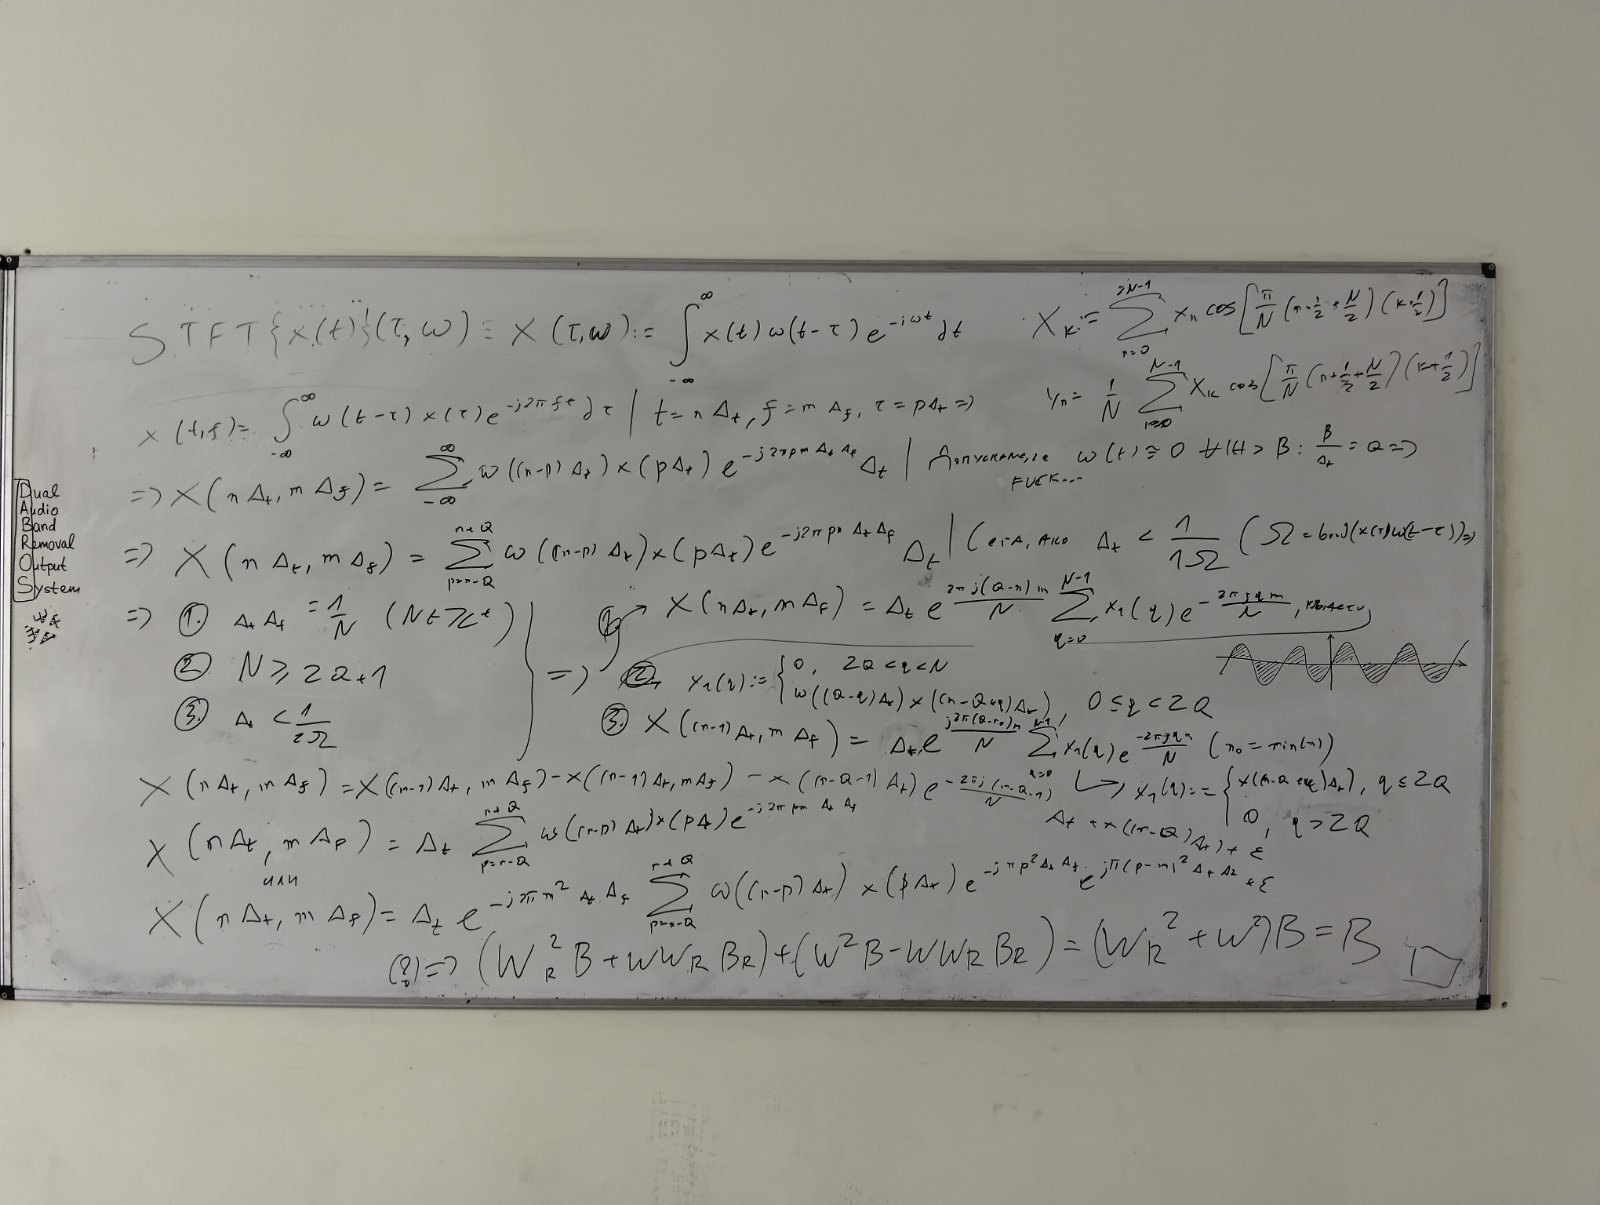 STFT{x(t)}(τ,ω) ≡ X(τ,ω) := ∫_{-∞}^{∞} x(t) ω(t-τ) e^{-iωt} dt
X_k := Σ_{n=0}^{2N-1} x_n cos[π/N (n+1/2+N/2)(k+1/2)]
y_n = 1/N Σ^{N-1} X_k cos[π/N (n+1/2+N/2)(k+1/2)]
x(t,f) = ∫_{-∞}^{∞} ω(t-τ) x(τ) e^{-j2πfτ} dτ | t=nΔt, f=mΔf, τ=pΔt =>
=> X(nΔt, mΔf) = Σ_{-∞}^{∞} ω((n-p)Δt) x(pΔt) e^{-j2πpmΔtΔf} Δt | Допускаме, че ω(t) ≅ 0 ∀|t| > B : B/Δt = Q =>
FUCK...
=> X(nΔt, mΔf) = Σ_{p=n-Q}^{n+Q} ω((n-p)Δt) x(pΔt) e^{-j2πpmΔtΔf} Δt | Сега, ако Δt < 1/1Ω (Ω = bnd(x(τ)ω(t-τ))) =>
Dual
Audio
Band
Removal
Output
System
=> 1. ΔtΔf = 1/N
2. N ≥ 2Q+1
3. Δt < 1/2Ω
=> 1. X(nΔt, mΔf) = Δt e^{2πj(Q-n)m/N} Σ_{q=0}^{N-1} x_1(q) e^{-2πjqm/N}, където
2. x_1(q) := {0, 2Q<q<N
ω((Q-q)Δt) x((n-Q+q)Δt), 0≤q≤2Q
3. X((n-1)Δt, mΔf) = Δt e^{j2π(Q-n_0)m/N} Σ_{q=0}^{N-1} x_1(q) e^{-2πjqm/N} (n_0 = min(n))
X(nΔt, mΔf) = X((n-1)Δt, mΔf) - x((n-1)Δt, mΔf) - x((n-Q-1)Δt) e^{-2πj(n-Q-1)/N}
↳ x_1(q) := {x((n-Q+q)Δt), q ≤ 2Q
0, q > 2Q
Δt + x((n-Q)Δt) + ε
X(nΔt, mΔf) = Δt Σ_{p=n-Q}^{n+Q} ω((n-p)Δt) x(pΔt) e^{-j2πpmΔtΔf}
или
X(nΔt, mΔf) = Δt e^{-jπm²ΔtΔf} Σ_{p=n-Q}^{n+Q} ω((n-p)Δt) x(pΔt) e^{-jπp²ΔtΔf} e^{jπ(p-m)²ΔtΔf} + ε
(?) => (W_R² B + W W_R B_R) + (W² B - W W_R B_R) = (W_R² + W²)B = B